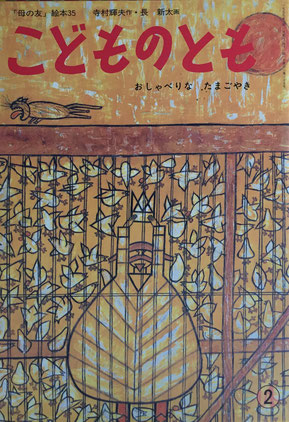 「母の友」絵本35　寺村輝夫作・長　新太画
こどものとも
おしゃべりな　たまごやき
2